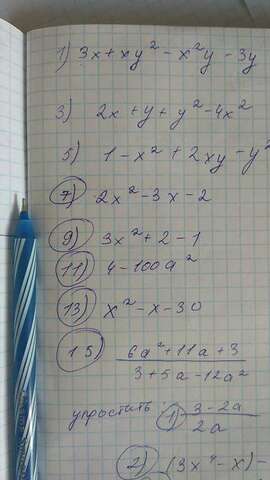 1) 3x + xy² - x²y - 3y
3) 2x + y + y² - 4x²
5) 1 - x² + 2xy - y²
7) 2x² - 3x - 2
9) 3x² + 2 - 1
11) 4 - 100a²
13) x² - x - 30
15) 6a² + 11a + 3
3 + 5a - 12a²
упростить: 1) 3 - 2a
2a
2) (3x⁴ - x) -